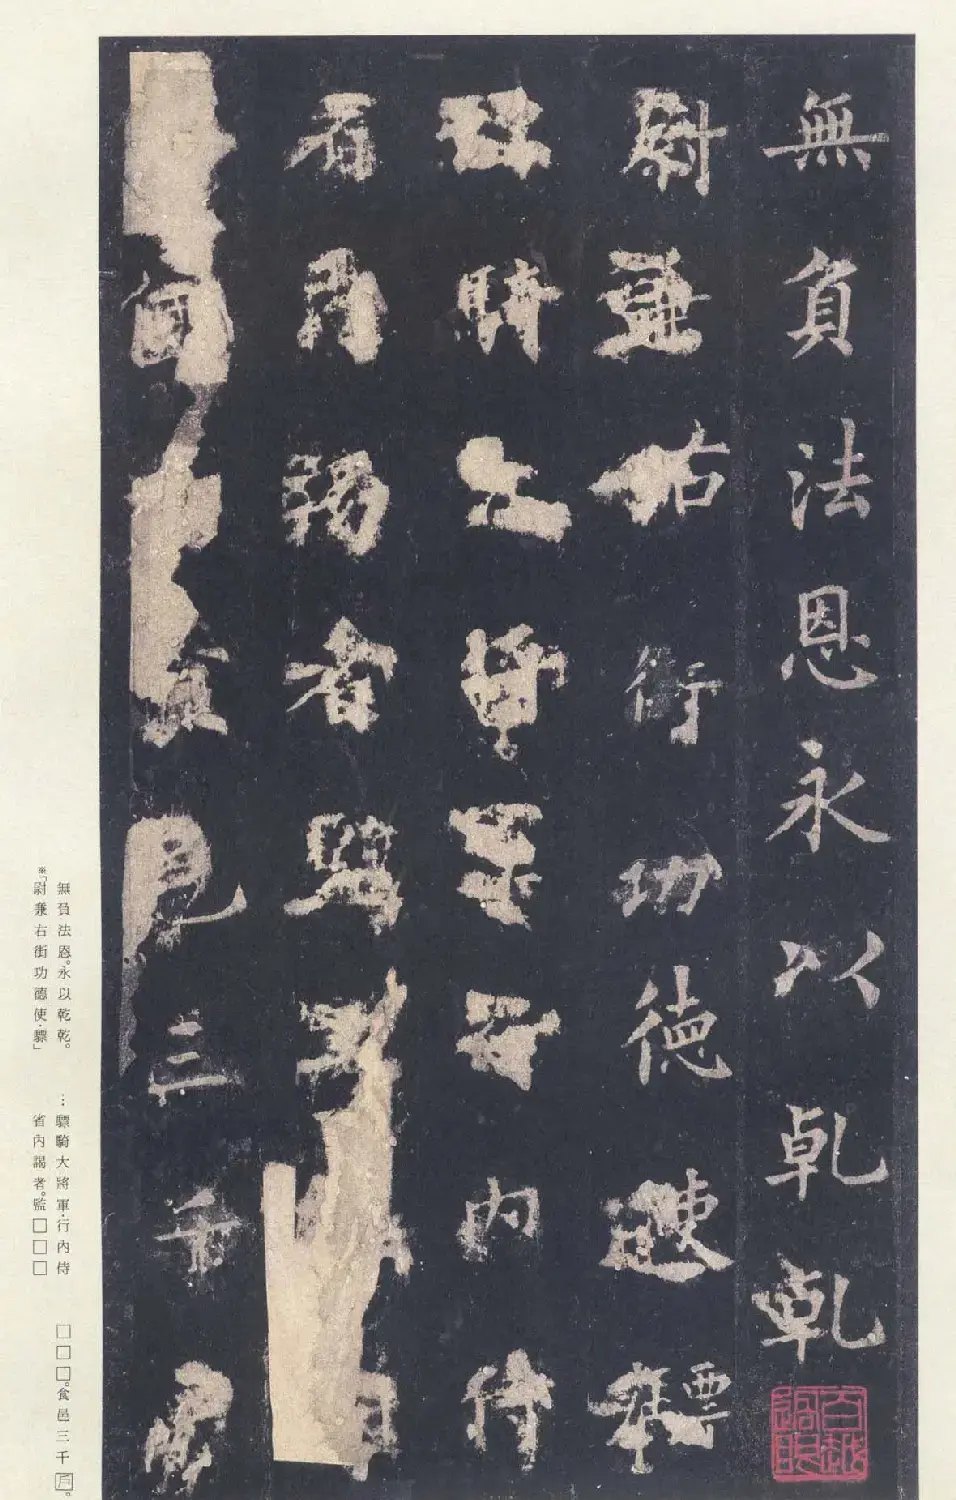 無負法恩永以乹乹
尉兼右街功德使驃
騎大將軍行內侍
省內謁者監
食邑三千
無負法恩。永以乾乾。
※「尉兼右街功德使·驃」
…驃騎大將軍·行內侍
省內謁者。監□□□
□□□。食邑三千戶。